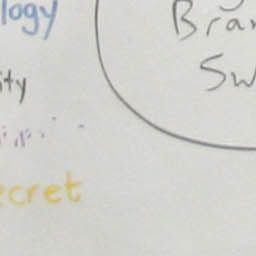 logy
ity
ecret
Bran
Sw